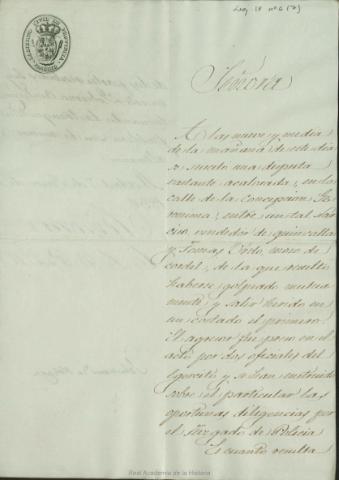 Leg 18 nº 6 (7)
GOBIERNO CIVIL DE PROVINCIA
MADRID
Señora
A las nueve y media
de la mañana de este dia
se suscitó una disputa
bastante acalorada, en la
calle de la Concepcion Ge-
ronima, entre un tal Nar-
ciso, vendedor de quincalla
y Tomas Pardo, mozo de
cordel, de la que resultó
haberse golpeado mutua-
mente y salir herido en
un costado el primero.
El agresor fue preso en el
acto por dos oficiales del
Ejercito y se han instruido
sobre el particular las
oportunas diligencias por
el Juzgado de Policia
Es cuanto resulta
Real Academia de la Historia